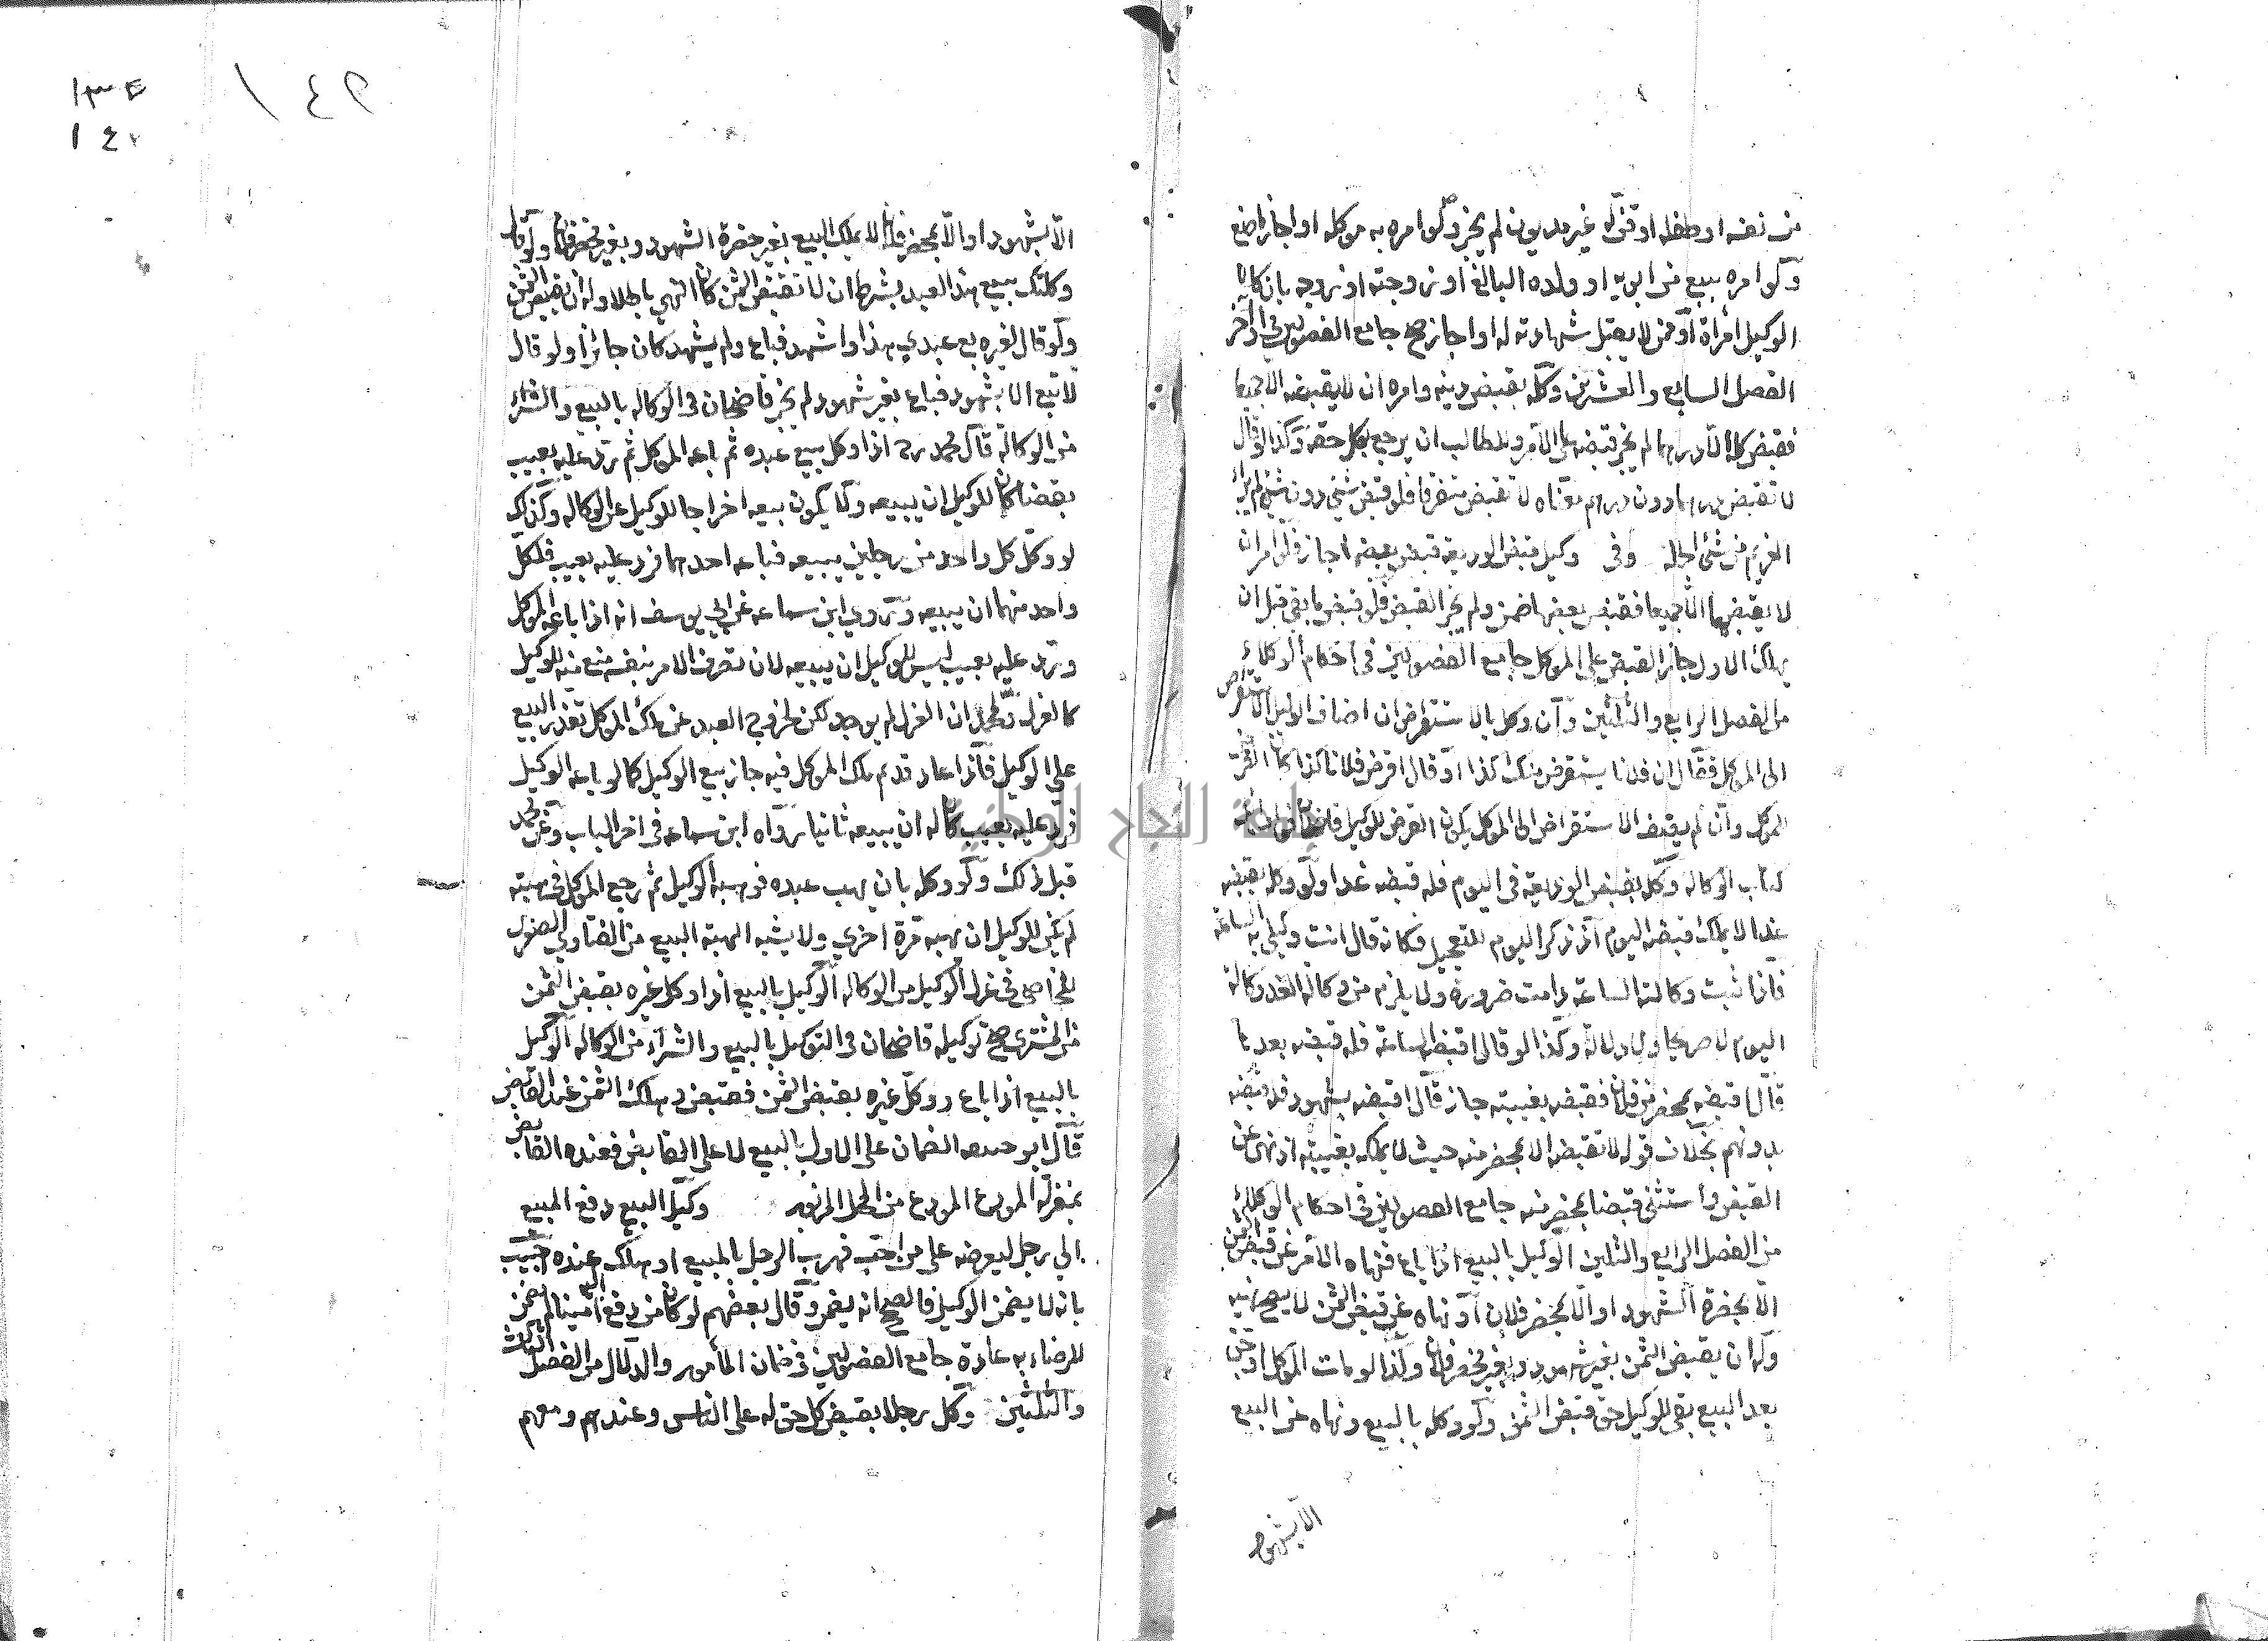 من نفسه او طفله او قنّ له غير مديون لم يجز وكّوا امره به موكله او اجاز ما صنع
ولو امره ببيع من ابويه او ولده البالغ او زوجته او زوجه بان كان
الوكيل امرأة او ممن لا يقبل شهادته له او اجاز صح جامع الفصولين في آخر
الفصل السابع والعشرين وكّله بقبض دينه وامره ان لا يقبضه الا جميعا
فقبض كله الا درهما لم يجز قبضه على الآمر وللطالب ان يرجع بكل حقه وكذا لو قال
لا تقبض درهما دون درهم معناه لا تقبض متفرقا فلو قبض شيئ دون شيئ لم يبرأ
الغريم من شيئ لجملة وفى وكيل قبض الوديعة قبض بعضه اجاز فلو امر ان
لا يقبضها الا جميعا فقبض بعضها ضمن ولم يجز القبض فلو قبض ما بقى قبل ان
يهلك الاول جاز القبض على الموكل جامع الفصولين فى احكام الوكلاء
من الفصل الرابع والثلثين وآن وكل بالاستقراض ان اضاف الوكيل الاستقراض
الى الموكل فقال ان فلانا يستقرض منك كذا او قال اقرض فلانا كذا كان القرض
للموكل وآن لم يضف الاستقراض الى الموكل يكون القرض للوكيل
كتاب الوكالة وكّل بقبض الوديعة فى اليوم فله قبضه غدا ولو وكل بقبضه
غدا لا يملك قبضه اليوم اذ ذكر اليوم للتعجيل فكانه قال انت وكيلي به الساعة
فاذا ثبت وكالته الساعة دامت ضرورة ولا يلزم من وكالة الغد وكالة
اليوم لا صريحا ولا دلالة وكذا لو قال اقبضه الساعة فله قبضه بعدها
قال اقبضه بمحضر من فلان فقبضه بغيبته جاز قال اقبضه بشهود فله قبضه
بدونهم بخلاف قوله لا تقبضه الا بمحضر منه حيث لا يملكه بغيبته اذ نهى عن
القبض واستثنى قبضا بمحضر منه جامع الفصولين فى احكام الوكلاء
من الفصل الرابع والثلثين الوكيل بالبيع اذا باع فنهاه الآمر عن قبض الثمن
الا بحضرة الشهود او الا بمحضر فلان او نهاه عن قبض الثمن لا يصح نهيه
وله ان يقبض الثمن بغير شهود وبغير محضر فلان وكذا لو مات الموكل او جن
بعد البيع بقى للوكيل حق قبض الثمن ولو وكله بالبيع ونهاه عن البيع
الا بشهود
١٤٩
١٣٤
١٤٠
الا بشهود او الا بمحضر فلان لا يملك البيع بغير حضرة الشهود وبغير محضر فلان ولو قال
وكلتك ببيع هذا العبد بشرط ان لا تقبض الثمن كان النهي باطلا وله ان يقبض الثمن
ولو قال لغيره بع عبدي هذا واشهد فباع ولم يشهد كان جائزا ولو قال
لا تبع الا بشهود فباع بغير شهود لم يجز قاضيخان فى الوكالة بالبيع والشراء
من الوكالة قال محمد رح اذا وكل ببيع عبده ثم باعه الموكل ثم رد عليه بعيب
بقضاء كان للوكيل ان يبيعه ولا يكون بيعه اخراجا للوكيل عن الوكالة وكذلك
لو وكّل كل واحد من رجلين ببيعه فباعه احدهما فرد عليه بعيب فلكل
واحد منهما ان يبيعه وروي ابن سماعه عن ابي يوسف انه اذا باعه الموكل
ورد عليه بعيب ليس للوكيل ان يبيعه لان تصرف الآمر بنفسه منع منه للوكيل
كالعزل ولمحمد ان العزل لم يوجد لكن لخروج العبد عن ملك الموكل تعذر البيع
على الوكيل فاذا عاد قديم ملك الموكل فيه جاز بيع الوكيل كما لو باعه الوكيل
فرد عليه بعيب كان له ان يبيعه ثانيا رواه ابن سماعه فى اخر الباب وعن محمد
قبل ذلك ولو وكله بان يهب عبده فوهبه الوكيل ثم رجع الموكل فى هبته
لم يكن للوكيل ان يهبه مرة اخرى ولا يشبه الهبة البيع من الفتاوي الصغرى
فى عزل الوكيل من الوكالة الوكيل بالبيع اذا وكل غيره بقبض الثمن
من المشترى صح توكيله قاضيخان فى التوكيل بالبيع والشراء من الوكالة الوكيل
بالبيع اذا باع ووكّل غيره بقبض الثمن فقبض وهلك الثمن عند القابض
قال ابو حنيفه الضمان على الاول بالبيع لا على القابض فعنده القابض
بمنزلة المودع المودع من المحل المزبور وكيل البيع دفع المبيع
الي رجل ليعرضه على من احب فهرب الرجل بالمبيع او هلك عنده
بانه لا يضمن الوكيل فالصحيح انه يضمن وقال بعضهم لو كان من دفع اليه امينا لم يضمن
للرضاء به عادة جامع الفصولين فى ضمان المأمور والدلال من الفصل الثالث
والثلثين وكّل رجلا بقبض كل حق له على الناس وعندهم ومعهم
جامعة النجاح الوطنية